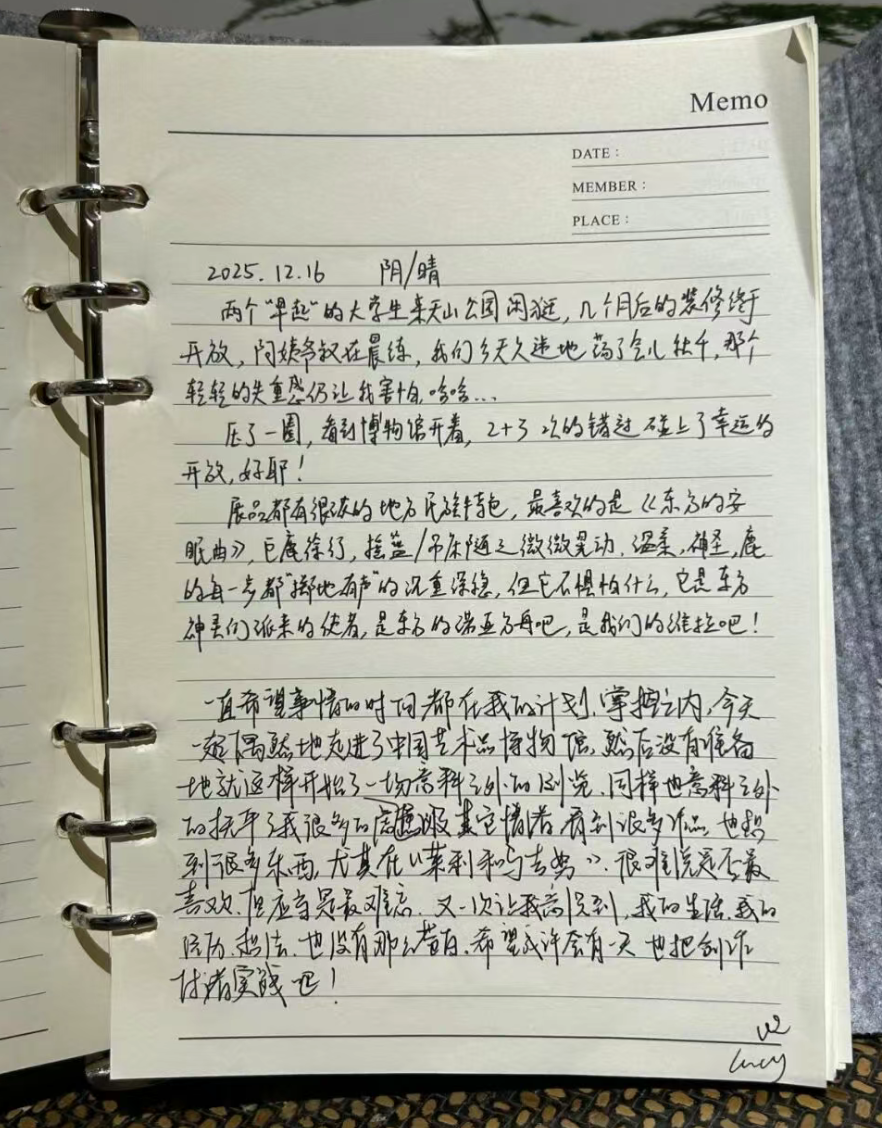 Memo
DATE：
MEMBER：
PLACE：
2025.12.16 阴/晴
两个“早起”的大学生来天山公园闲逛，几个月后的装修终于
开放，阿姨爷叔在晨练，我们今天久违地荡了会儿秋千，那个
轻轻的失重感仍让我害怕，哈哈...
压了一圈，看到博物馆开着，2+3次的错过碰上了幸运的
开放，好耶！
展品都有很浓的地方民族特色，最喜欢的是《东方的安
眠曲》，巨鹿徐行，摇篮/吊床随之微微晃动，温柔，神圣，鹿
的每一步都“掷地有声”的沉重深稳，但它不惧怕什么，它是东方
神灵们派来的使者，是东方的诺亚方舟吧，是我们的维拉吧！
一直希望事情的时间都在我的计划、掌控之内，今天
一起偶然地走进了中国艺术品博物馆，然后没有准备
地就这样开始了一场意料之外的浏览，同样也意料之外
的抚平了我很多的 其它情绪，看到很多作品，也想
到很多东西，尤其在《莱利和乌吉努》，很难说是否最
喜欢，但应当是最难忘，又一次让我意识到，我的生活、我的
经历、想法，也没有那么苍白，希望或许会有一天也把创作
付诸实践吧！
v2
Lucy